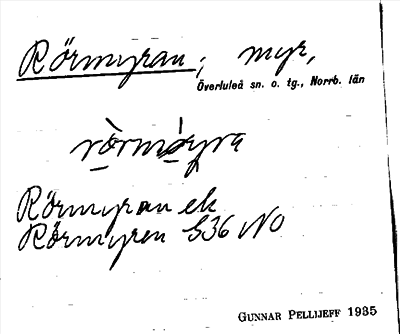 Rörmyran, myr,
Överluleå sn. o. tg., Norrb. län
ròrmøyra
Rörmyran ek
Rörmyren S36 NO
GUNNAR PELLIJEFF 1935